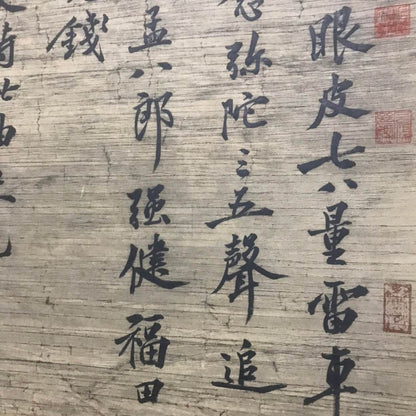 眼皮七八量雷車
弥陀三五聲追
孟八郎强健福田
錢